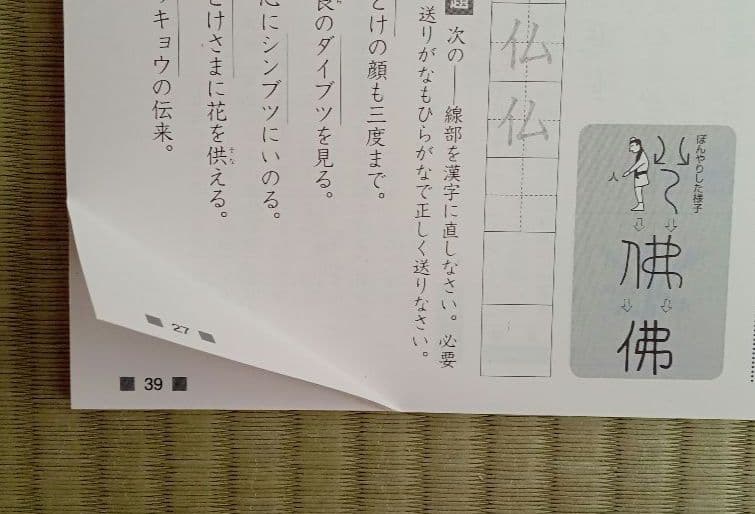 ぼんやりした様子
人
佛
佛
仏
仏
題
次の――線部を漢字に直しなさい。必要
送りがなもひらがなで正しく送りなさい。
とけの顔も三度まで。
のダイブツを見る。
にシンブツにいのる。
とけさまに花を供える。
そな
ッキョウの伝来。
27
39